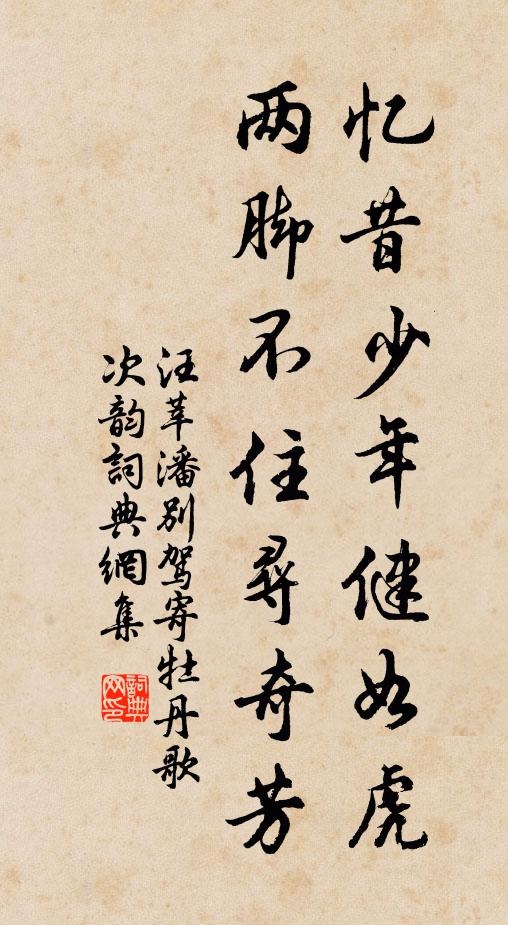 忆昔少年健如虎
两脚不住尋奇芳
汪莘潘别駕寄牡丹歌
次韵詞典網集
詞典网印